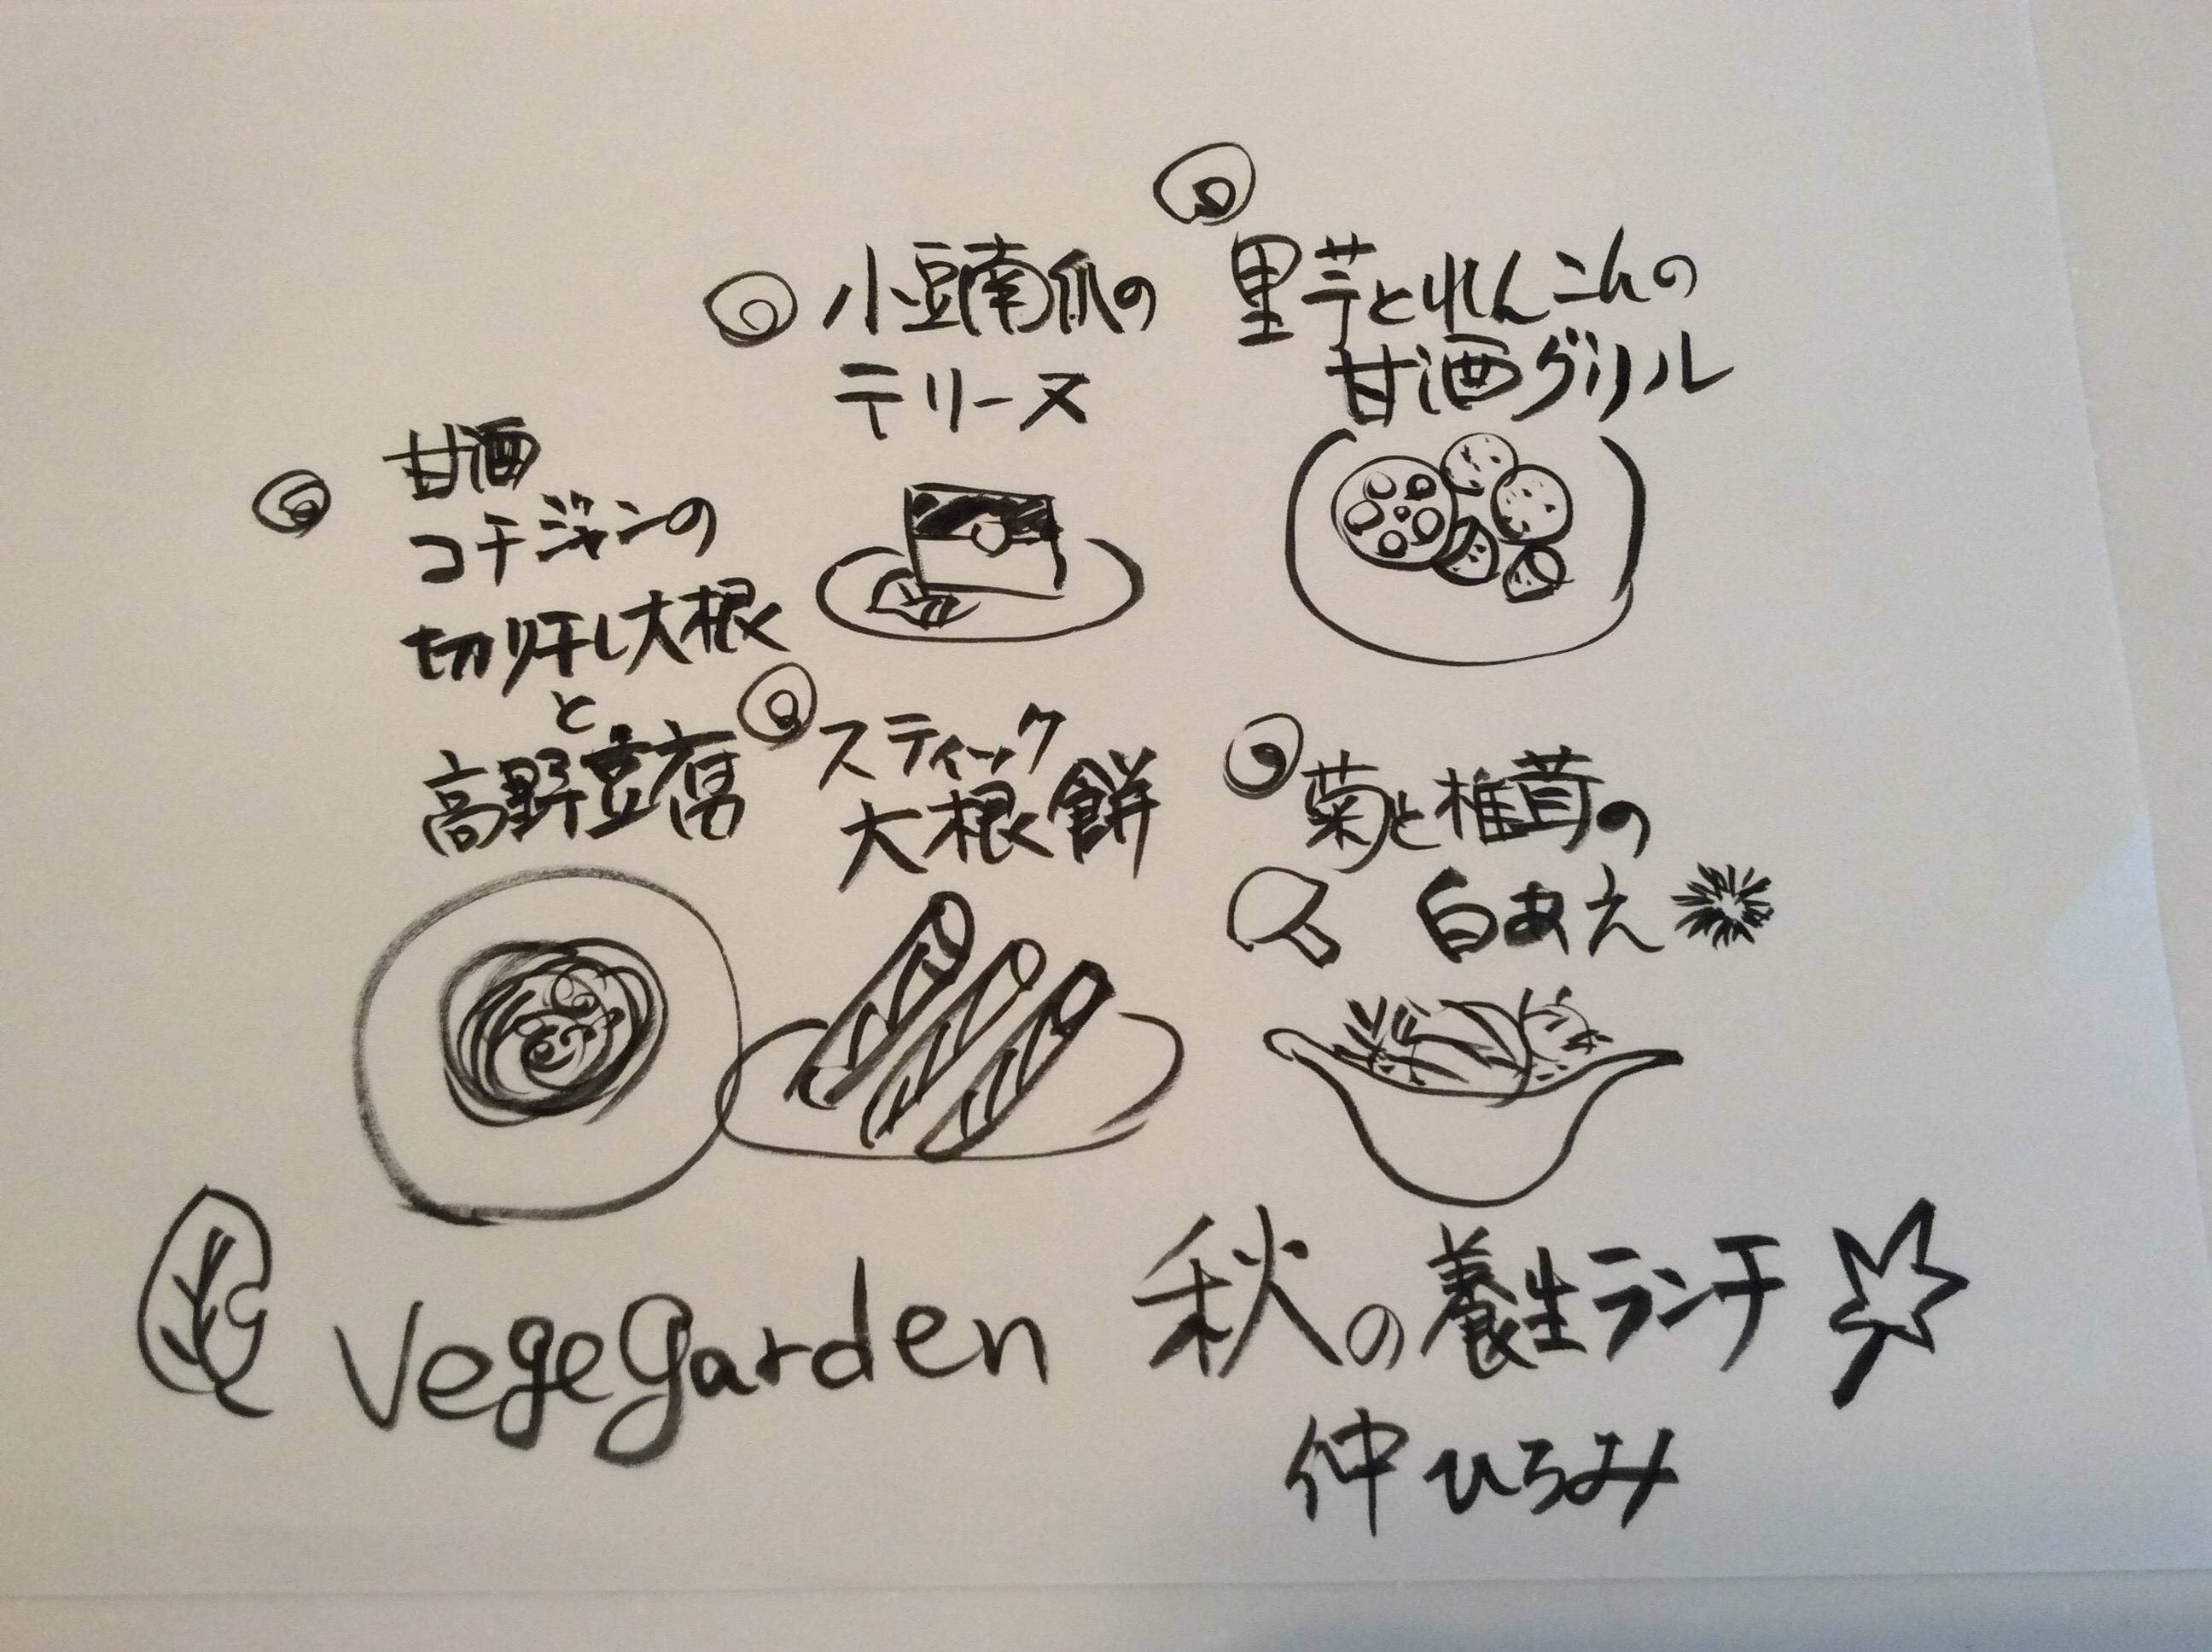 里芋とれんこんの
甘酒グリル
小豆南瓜の
テリーヌ
甘酒
コチジャンの
切り干し大根
と
高野豆腐
スティック
大根餅
菊と椎茸の
白あえ
vegegarden 秋の養生ランチ
仲ひろみ